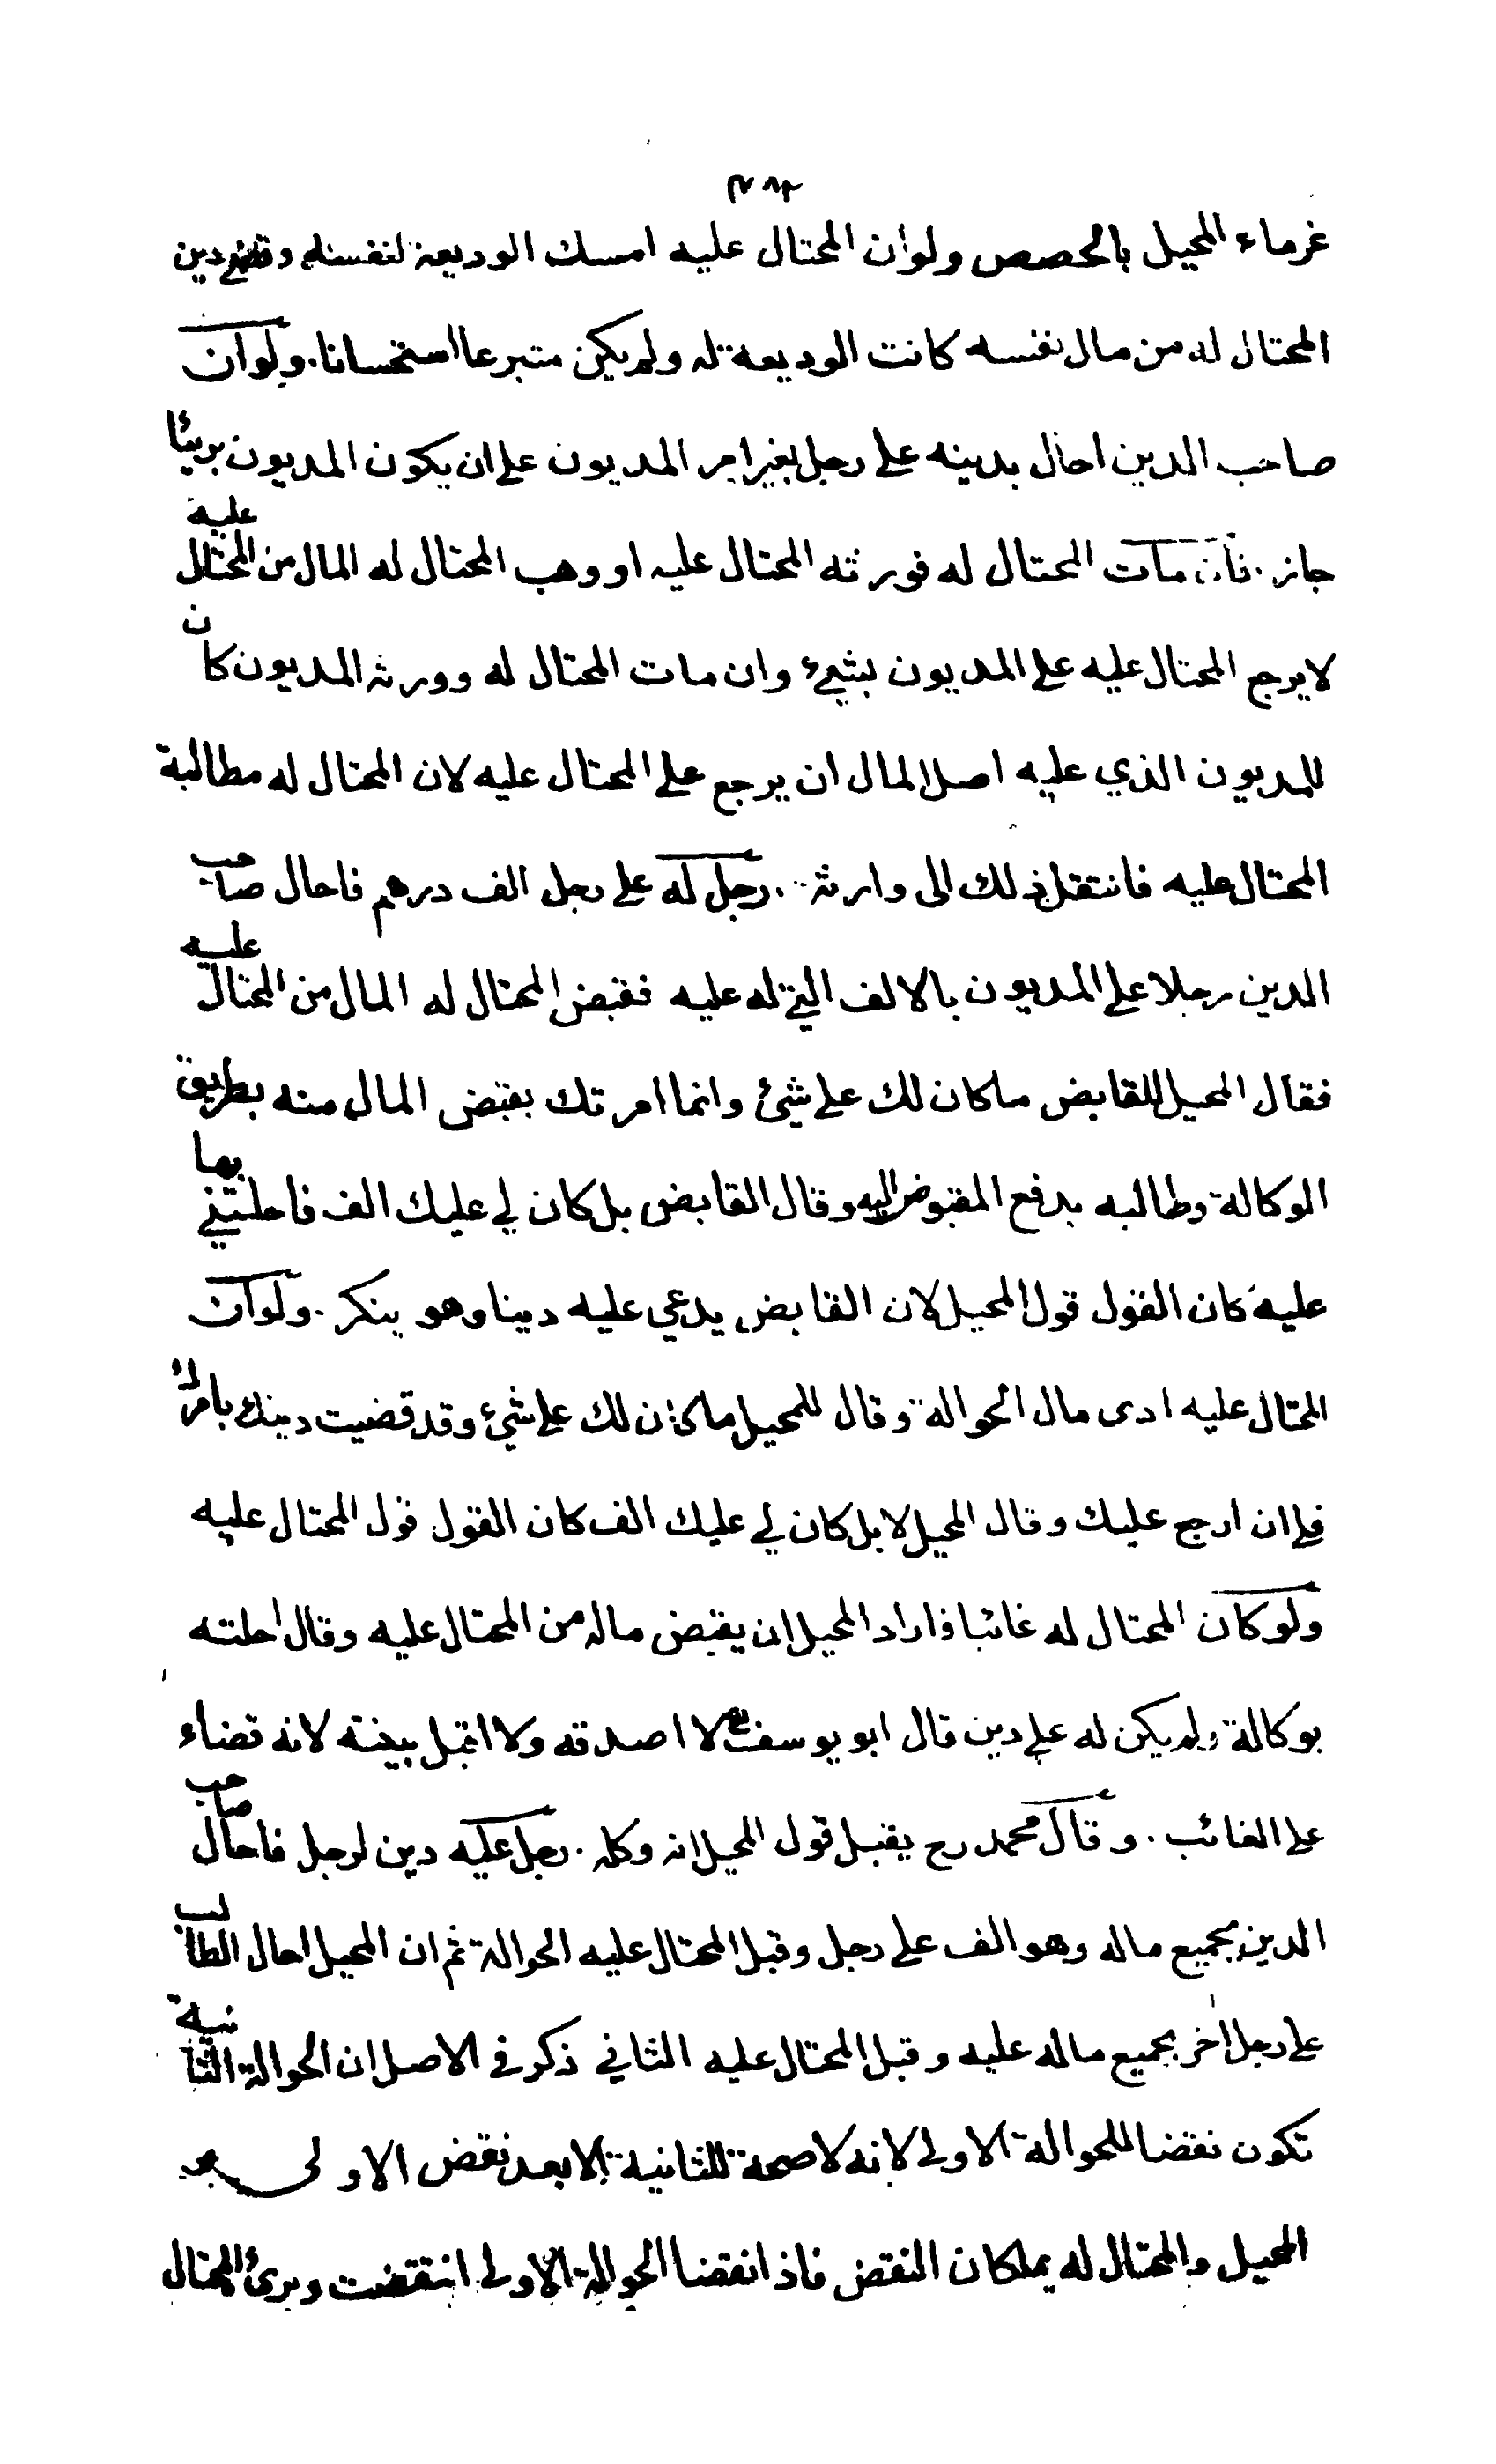 ٣٨٢
غرماء المحيل بالحصص ولو ان المحتال عليه امسك الوديعة لنفسه وقضى دين
المحتال له من مال نفسه كانت الوديعة له ولم يكن متبرعا استحسانا. ولو ان
صاحب الدين احال بدينه على رجل بغير امر المديون على ان يكون المديون بريئا
جاز. فان مات المحتال له فورثه المحتال عليه او وهب المحتال له المال من المحتال عليه
لا يرجع المحتال عليه على المديون بشيء وان مات المحتال له وورثه المديون كان
للمديون الذي عليه اصل المال ان يرجع على المحتال عليه لان المحتال له مطالبة
المحتال عليه فانتقل ذلك الى وارثه. رجل له على رجل الف درهم فاحال صاحب
الدين رجلا على المديون بالالف التي له عليه فقبض المحتال له المال من المحتال عليه
فقال المحيل للقابض ما كان لك على شئ وانما امرتك بقبض المال منه بطريق
الوكالة وطالبه بدفع المقبوض اليه وقال القابض بل كان لي عليك الف فاحلتني بها
عليه كان القول قول المحيل لان القابض يدعي عليه دينا وهو ينكر. ولو ان
المحتال عليه ادى مال الحوالة وقال للمحيل ما كان لك على شئ وقد قضيت دينك بامرك
فلي ان ارجع عليك وقال المحيل لا بل كان لي عليك الف كان القول قول المحتال عليه
ولو كان المحتال له غائبا فاراد المحيل ان يقبض ماله من المحتال عليه وقال احلته
بوكالة ولم يكن له علي دين قال ابو يوسف رح لا اصدقه ولا اقبل بينته لانه قضاء
على الغائب. وقال محمد رح يقبل قول المحيل انه وكله. رجل عليه دين لرجل فاحال صاحب
الدين بجميع ماله وهو الف على رجل وقبل المحتال عليه الحوالة ثم ان المحيل احال الطالب
على رجل اخر بجميع ماله عليه وقبل المحتال عليه الثاني ذكر في الاصل ان الحوالة الثانية
تكون نقضا للحوالة الاولى لانه لا صحة للثانية الا بعد نقض الاولى
المحيل والمحتال له يملكان النقض فاذا نقضا الحوالة الاولى انتقضت وبرئ المحتال